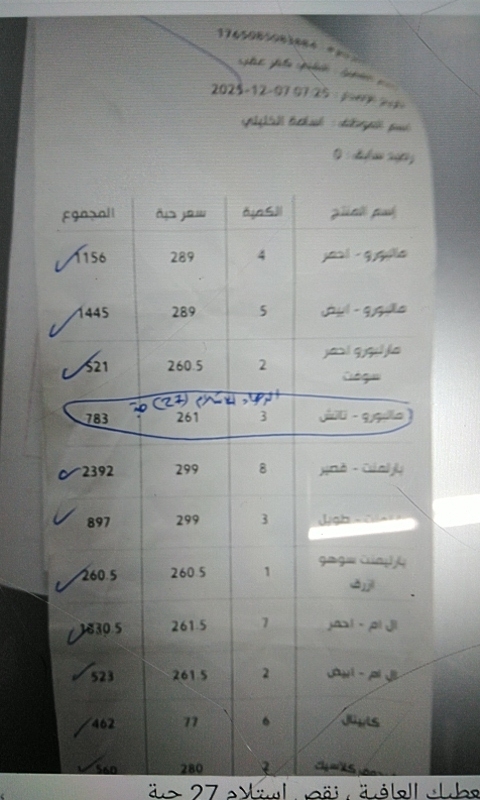 1765085083884
2025-12-07 07:25
اسم الموظف : اسامة الخليلي
رصيد سابق : 0
إسم المنتج الكمية سعر حبة المجموع
مالبورو - احمر 4 289 1156
مالبورو - ابيض 5 289 1445
مارلبورو احمر سوفت 2 260.5 521
مالبورو - تاتش 3 261 783
بارلمنت - قصير 8 299 2392
بارلمنت - طويل 3 299 897
بارليمنت سوهو ازرق 1 260.5 260.5
ال ام - احمر 7 261.5 1830.5
ال ام - ابيض 2 261.5 523
كابيتال 6 77 462
2 280 560
عطيك العافية ، نقص استلام 27 حبة